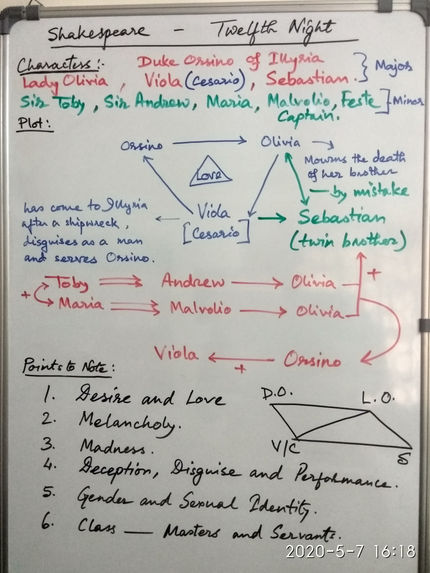 Shakespeare — Twelfth Night
Characters:- Duke Orsino of Illyria
Lady Olivia, Viola (Cesario), Sebastian. } Major
Sir Toby, Sir Andrew, Maria, Malvolio, Feste } Minor
Captain.
Plot:
Orsino → Olivia →
Mourns the death
of her brother
Love
by mistake
has come to Illyria
after a shipwreck,
disguises as a man
and serves Orsino.
Viola
[Cesario]
Sebastian
(twin brother)
Toby Andrew Olivia +
+ Maria Malvolio Olivia
Viola + Orsino
Points to Note:
1. Desire and Love
2. Melancholy.
3. Madness.
4. Deception, Disguise and Performance.
5. Gender and Sexual Identity.
6. Class — Masters and Servants.
D.O. L.O.
V/C S
2020-5-7 16:18